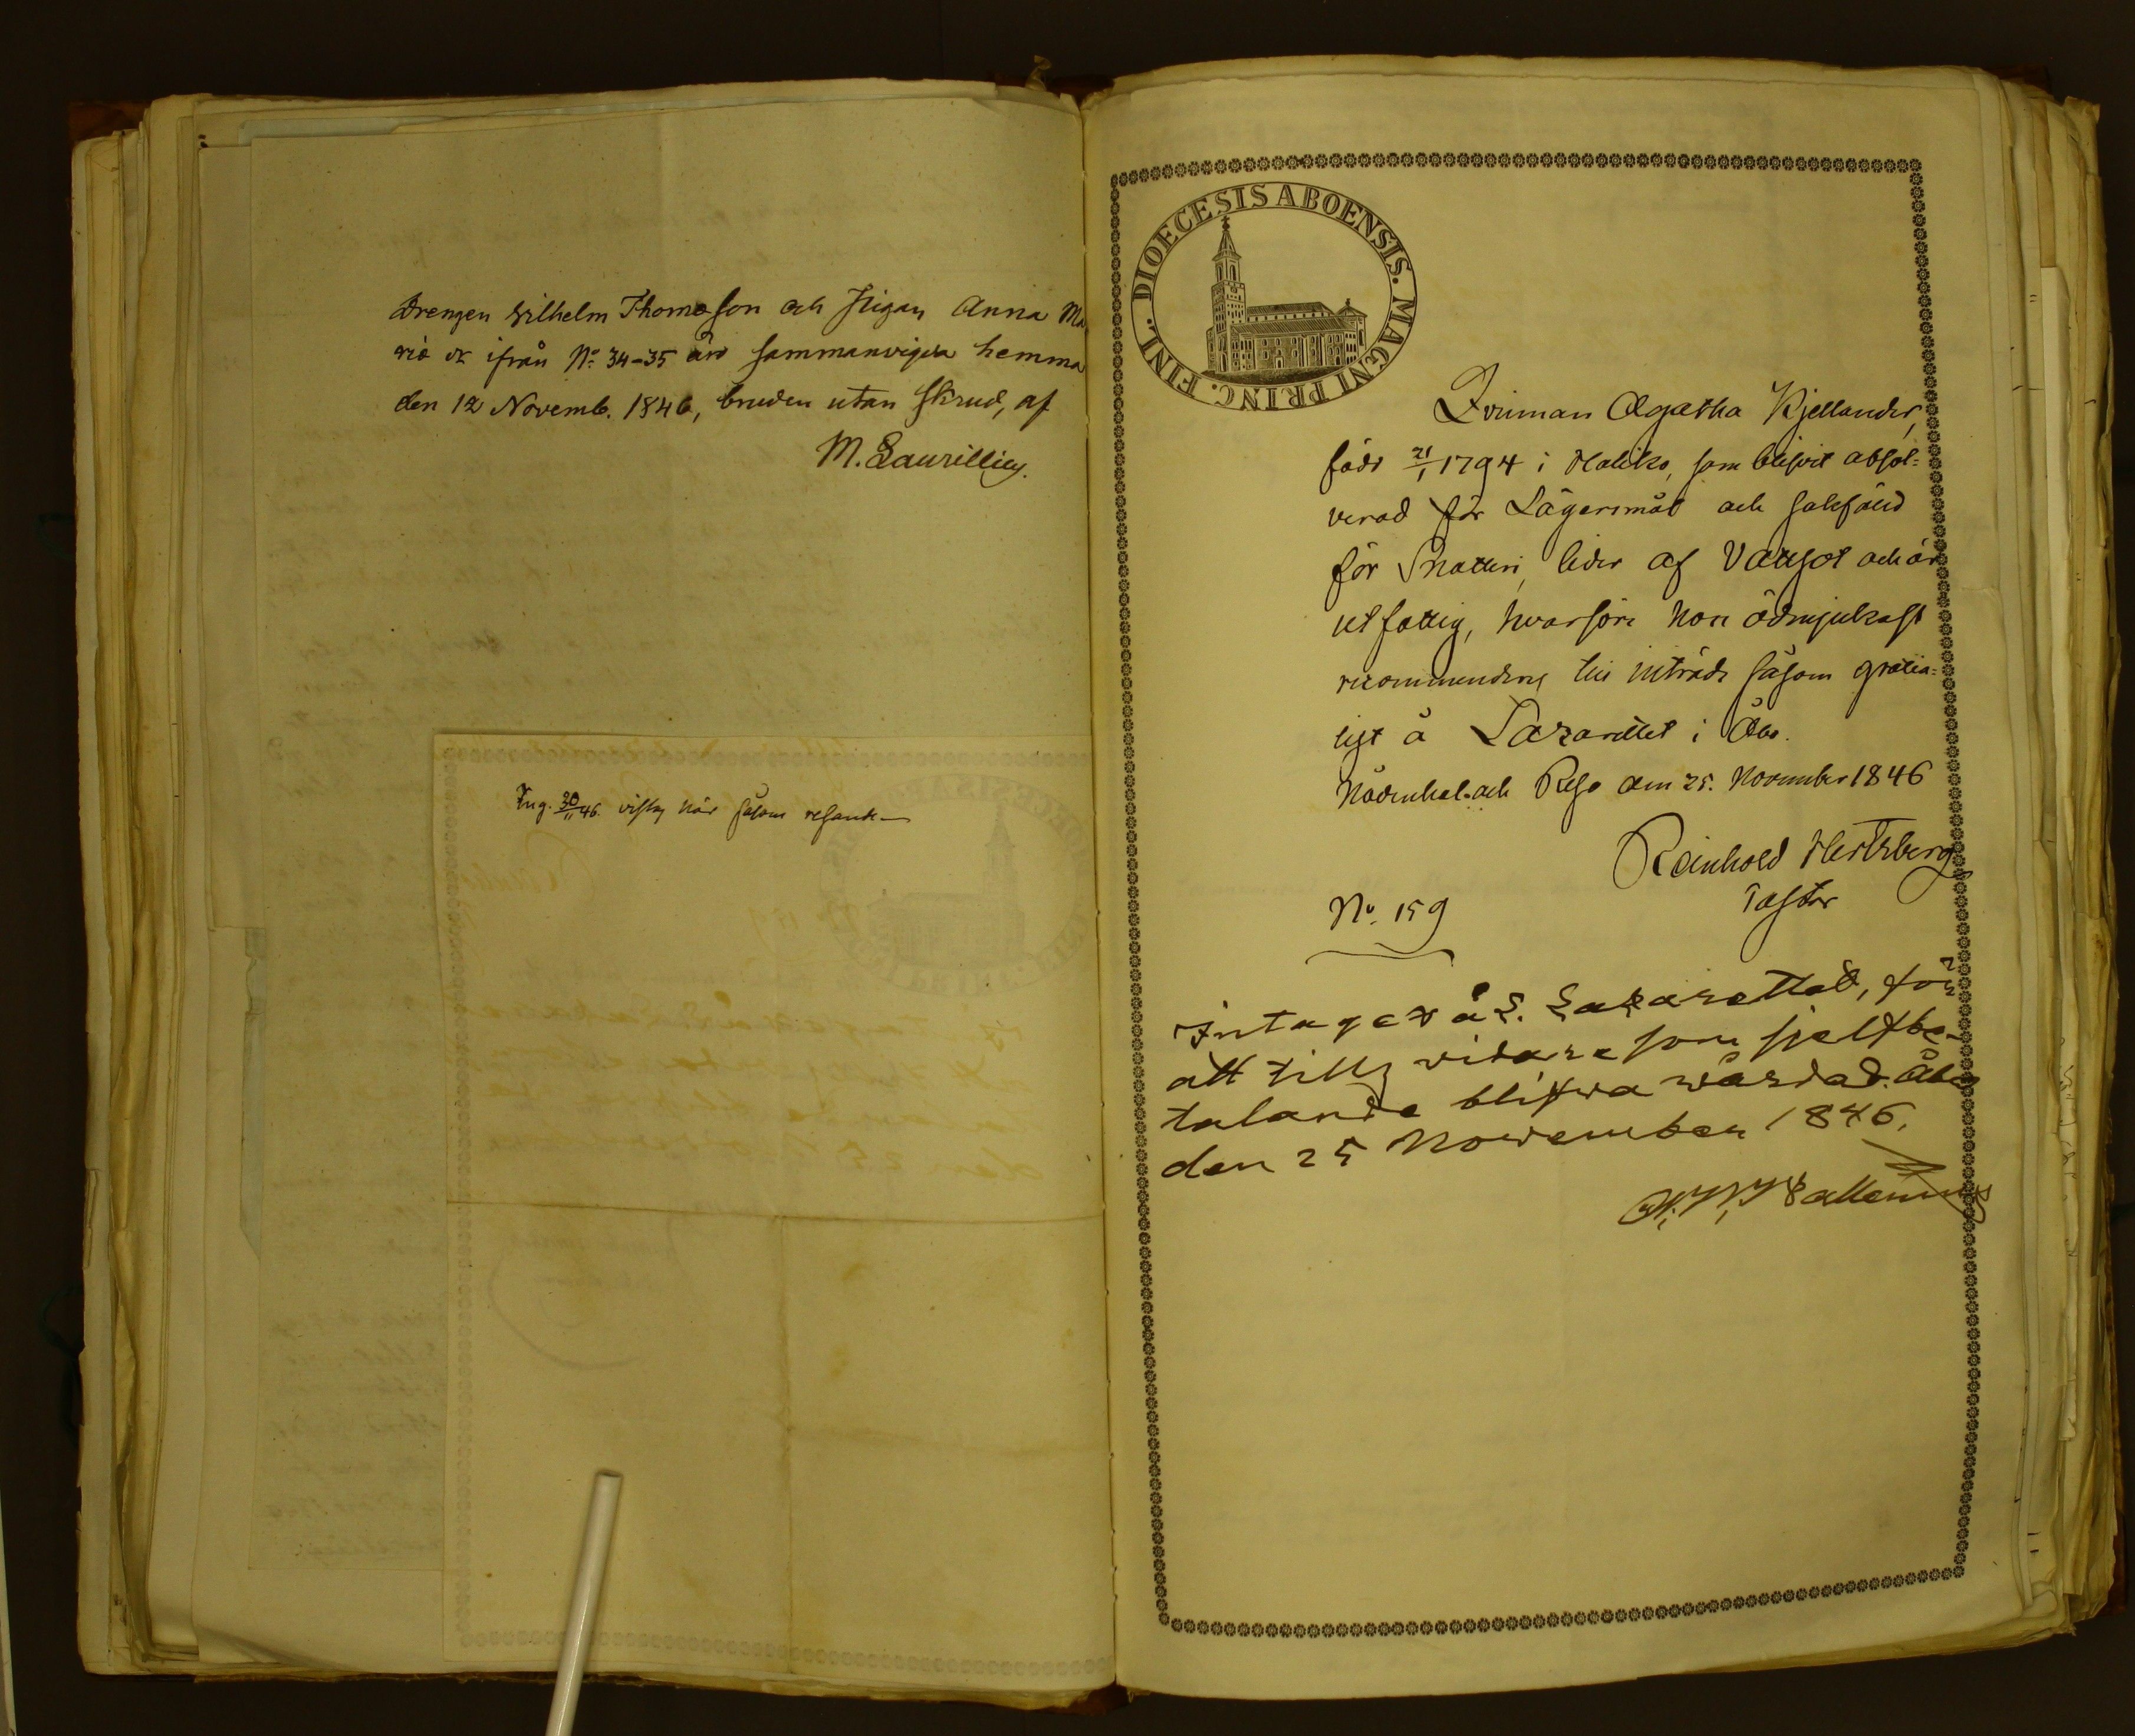 Drengen Wilhelm Thomasson och Pigan Anna Ma
ria ifrån No. 34-35 äro sammanvigda hemma
den 12 Novemb. 1846, bruden utan skrud, af
M. Laurillius.
Ing. 30/11 46. här såsom resande
DIOECESIS ABOENSIS. MAGNI PRINC. FINL.
Qvinnan Agatha Kjellander,
född 21/1 1794 i Haliko, som blifvit absol-
verad för Lägersmål och sakfäld
för Snatteri, lider af Vattsot och är
utfattig, hvarföre hon ödmjukast
recommenderas till inträde såsom gratia-
list å Lazarettet i Åbo.
Nådendal och Reso den 25. November 1846
Reinhold Hertzberg
Pastor
No. 159
Intages å S. Lazarettet, för
att tills vidare som sjelfbe-
talande blifwa wårdad. Åbo
den 25 November 1846.